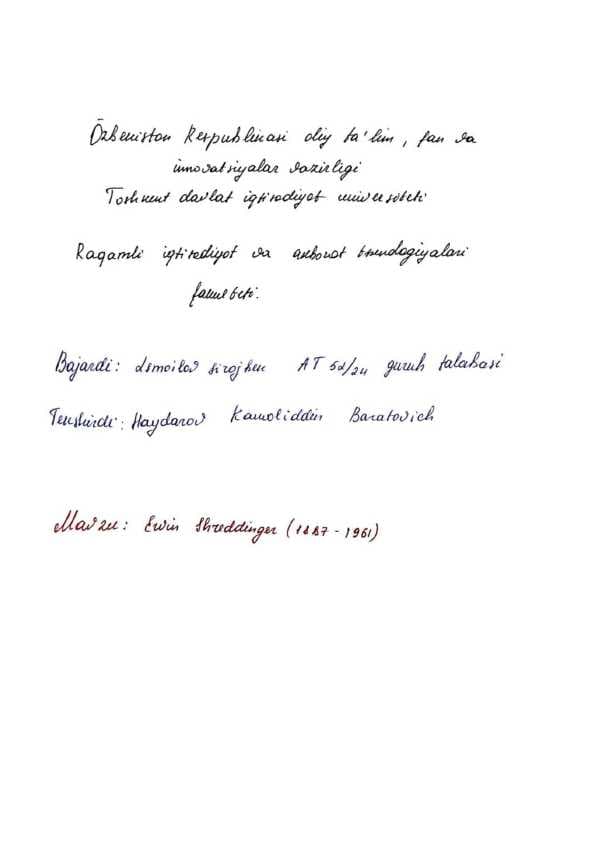 Ozbekiston Respublikasi oliy ta'lim, fan va
innovatsiyalar vazirligi
Toshkent davlat iqtisodiyot universiteti
Raqamli iqtisodiyot va axborot texnologiyalari
fakulteti.
Bajardi: Ismoilov Sirojbek AT 52/24 guruh talabasi
Tekshirdi: Haydarov Kamoliddin Baratovich
Mavzu: Erwin Shreddinger (1887 - 1961)